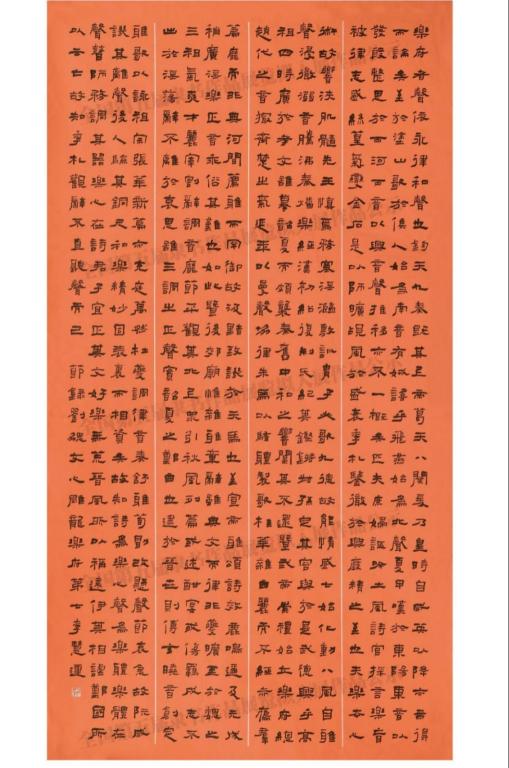 樂府者聲依永律和聲也鈞天九奏既其上帝葛天八闋爰乃皇時自咸英以降亦無得
而論矣至於塗山歌於候人始為南音有娀謠乎飛燕始為北聲夏甲嘆於東陽東音以
發殷整思於西河西音以興音聲推移亦不一概矣匹夫庶婦謳吟土風詩官採言樂胥
被律志感絲篁氣變金石是以師曠覘風於盛衰季札鑒微於興廢精之至也夫樂本心
術故響浹肌髓先王慎焉務塞淫濫敷訓冑子必歌九德故能情感七始化動八風自雅
聲浸微溺音騰沸秦燔樂經漢初紹復制氏紀其鏗鏘叔孫定其容與於是武德興乎高
祖四時廣於孝文雖摹韶夏而頗襲秦舊中和之響闃其不還暨武帝崇禮始立樂府總
趙代之音撮齊楚之氣延年以曼聲協律朱馬以騷體製歌桂華雜曲麗而不經赤雁羣
篇靡而非典河間薦雅而罕御故汲黯致譏於天馬也至宣帝雅頌詩效鹿鳴邇及元成
稍廣淫樂正音乖俗其難也如此暨後郊廟惟雜雅章辭雖典文而律非夔曠至於魏之
三祖氣爽才麗宰割辭調音靡節平觀其北上眾引秋風列篇或述酣宴或傷羈戍志不
出於淫蕩辭不離於哀思雖三調之正聲實韶夏之鄭曲也逮於晉世則傅玄曉音創定
雅歌以詠祖宗張華新篇亦充庭萬然杜夔調律音奏舒雅荀勖改懸聲節哀急故阮咸
譏其離聲後人驗其銅尺和樂精妙固表裏而相資矣故知詩為樂心聲為樂體樂體在
聲瞽師務調其器樂心在詩君子宜正其文好樂無荒晉風所以稱遠伊其相謔鄭國所
以云亡故知季札觀辭不直聽聲而已 節錄劉勰文心雕龍樂府第七 李慧運